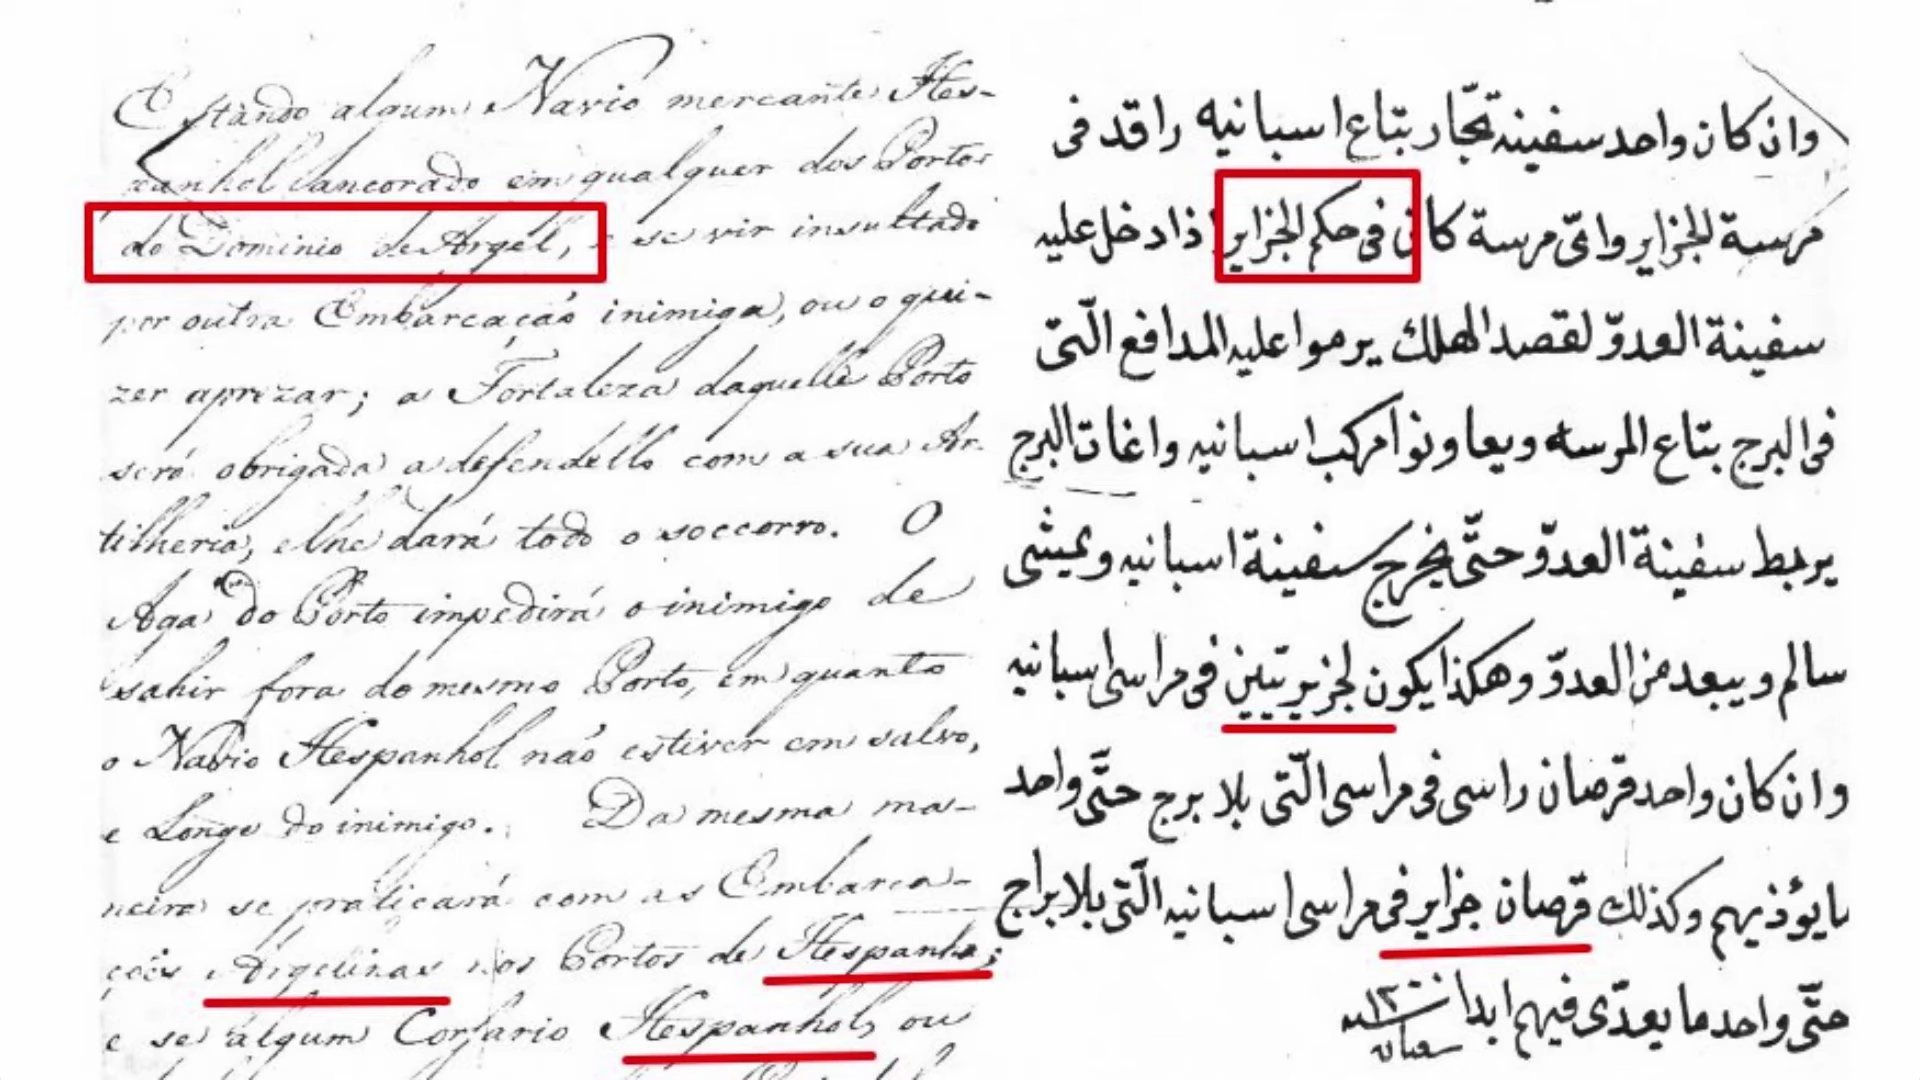 Estando algum Navio mercante Hes-
panhol ancorado em qualquer dos Portos
do Dominio de Argel, e se vir insultado
por outra Embarcação inimiga, ou o qui-
zer aprezar; a Fortaleza daquelle Porto
será obrigada a defendello com a sua Ar-
tilheria, e lhe dará todo o soccorro. O
Aga do Porto impedirá o inimigo de
sahir fora do mesmo Porto, em quanto
o Navio Hespanhol não estiver em salvo,
e Longe do inimigo. Da mesma ma-
neira se praticará com as Embarca-
ções Argelinas nos Portos de Hespanha;
e se algum Corsario Hespanhol, ou
وان كان واحد سفينه تجّار بتاع اسبانيه راقد فى
مرسة الجزاير واىّ مرسة كان فى حكم الجزاير اذا دخل عليه
سفينة العدوّ لقصد الهلك يرموا عليه المدافع الّتى
فى البرج بتاع المرسه ويعاونوا مركب اسبانيه واغات البرج
يربط سفينة العدوّ حتّى يخرج سفينة اسبانيه ويمشى
سالم ويبعد من العدوّ وهكذا يكون لجزيريّين فى مراسى اسبانيه
وان كان واحد قرصان راسى فى مراسى الّتى بلا برج حتّى واحد
ما يؤذيهم وكذلك قرصان جزاير فى مراسى اسبانيه الّتى بلا براج
حتّى واحد ما يعدّى فيهم ابدا سنه ١٢٠٠
شعبان